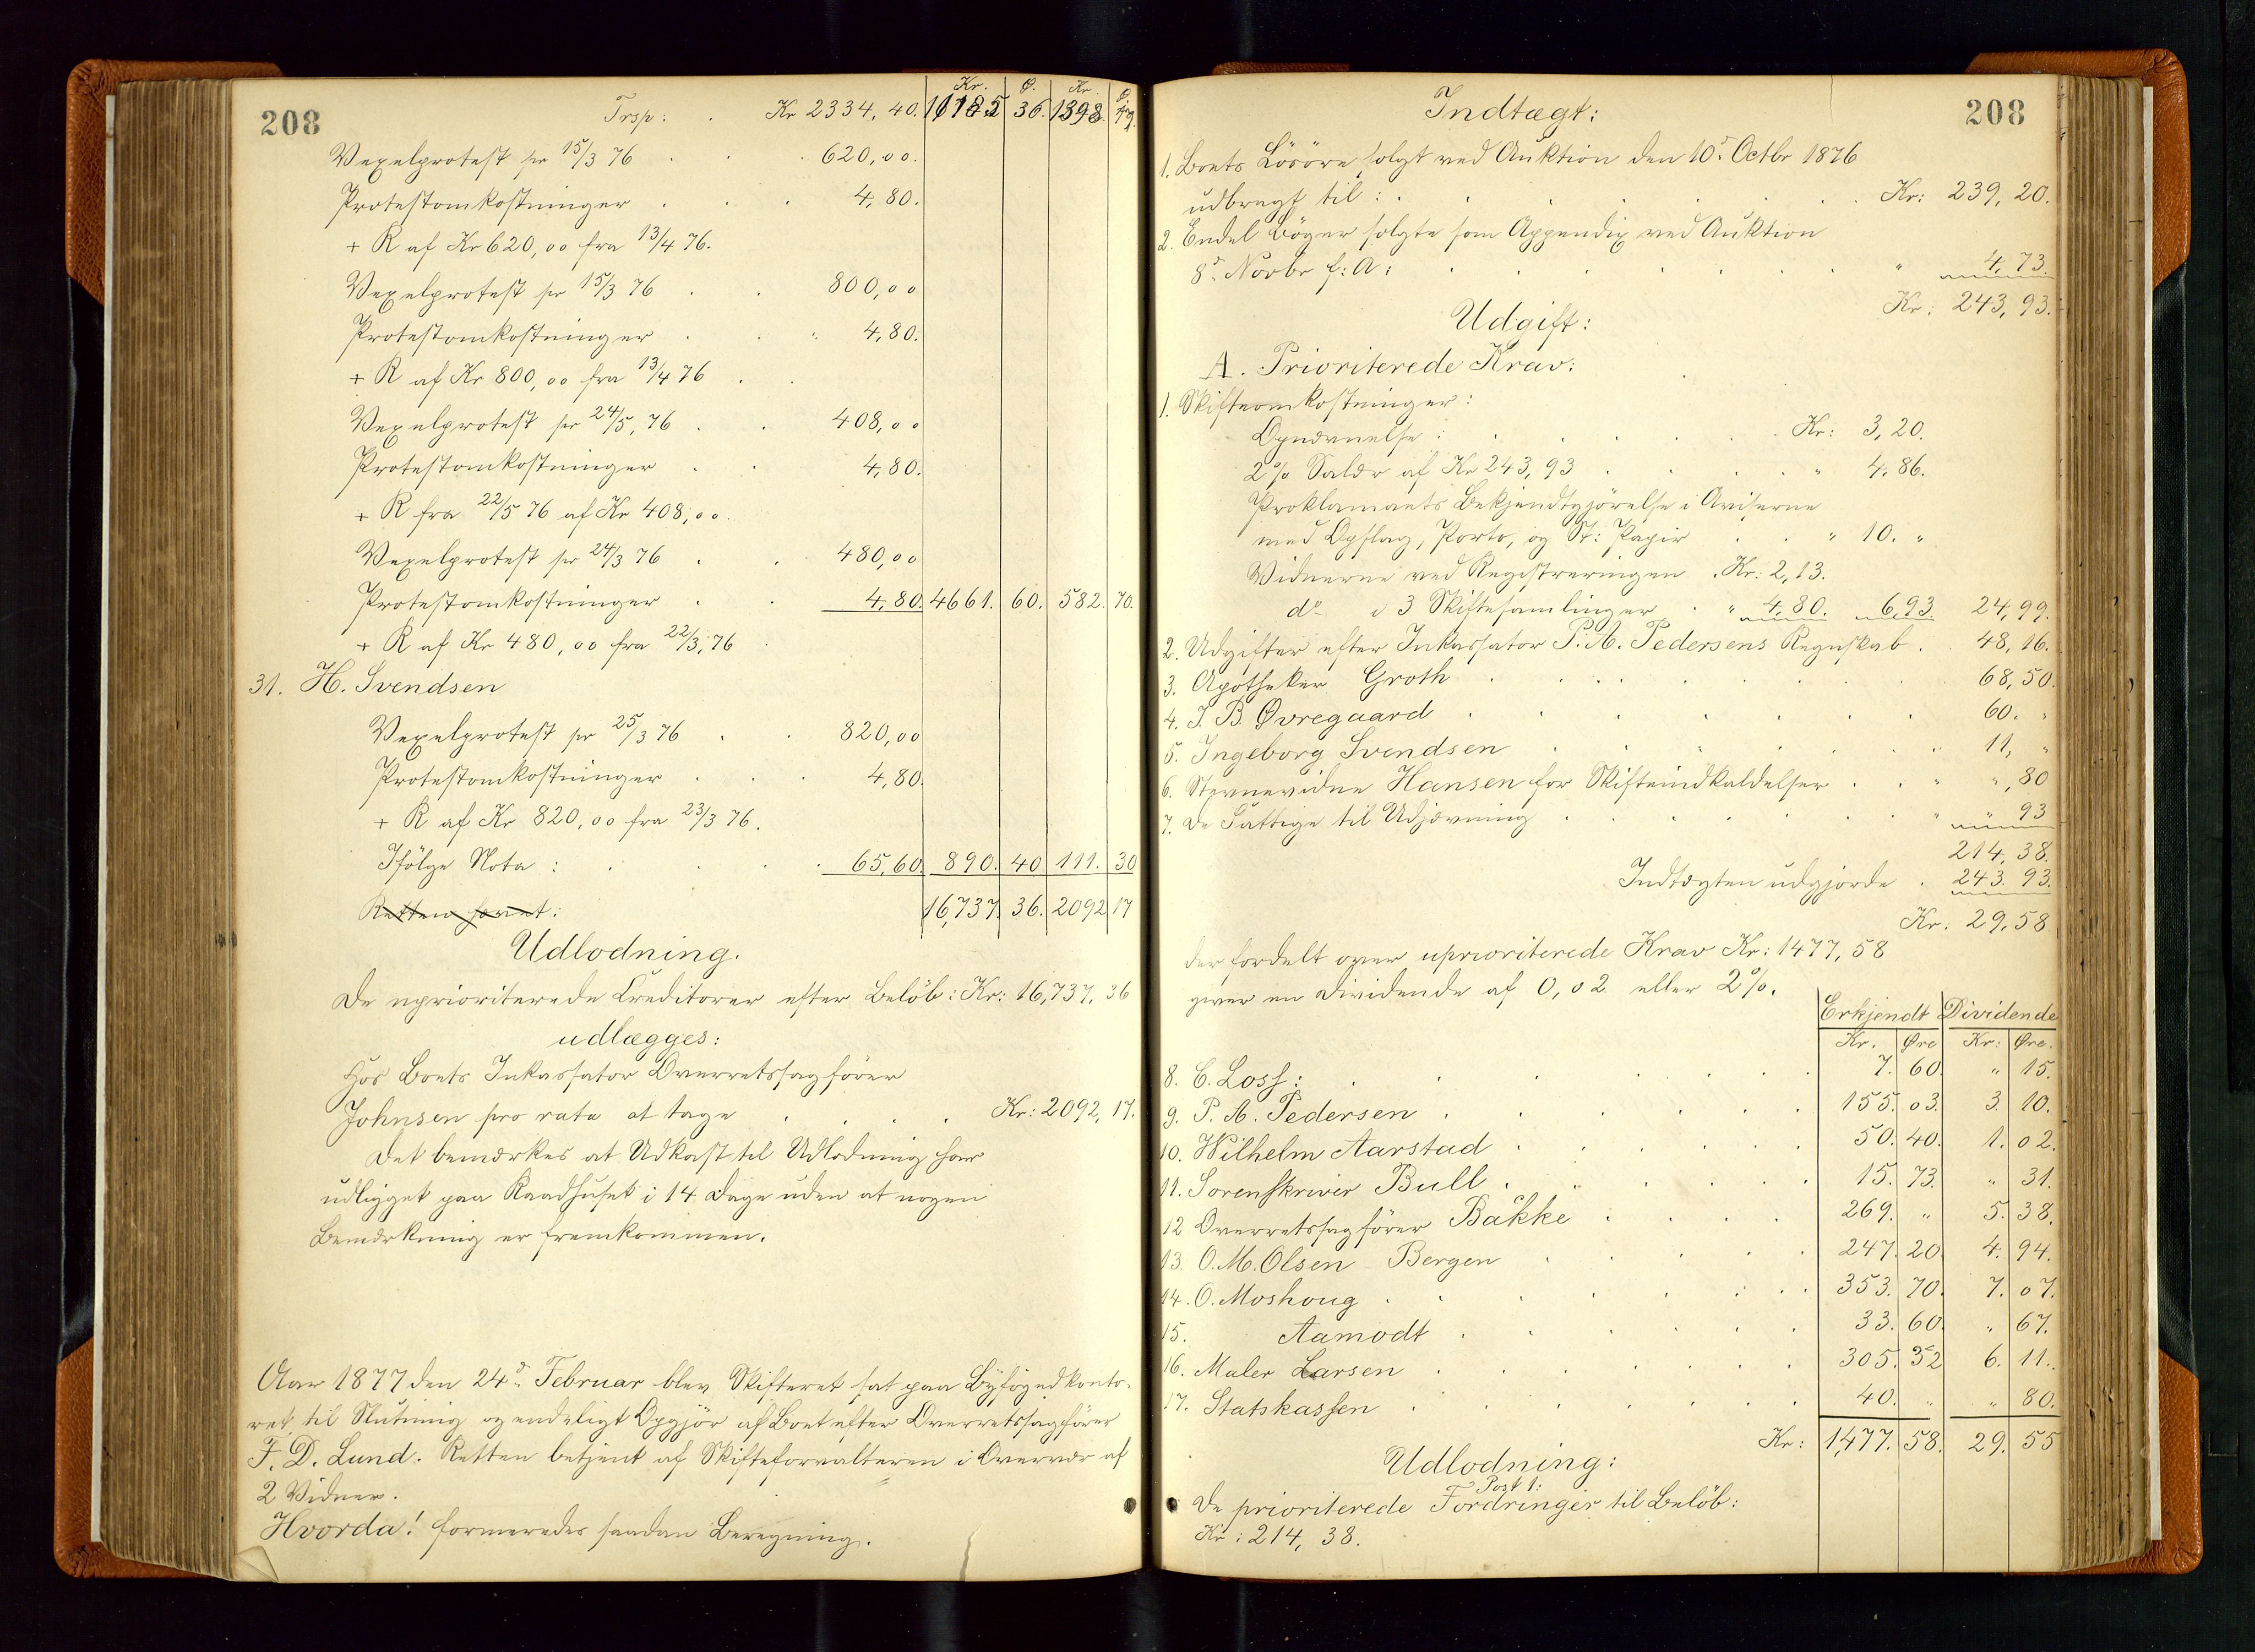 208
Kr. Ø. Kr. Ø.
Trsp: . Kr 2334, 40. 11185 36. 1398.
Vexelprotest pr 15/3 76 . . . 620,00.
Protestomkostninger . . . 4,80.
+ R af Kr 620,00 fra 13/4 76.
Vexelprotest pr 15/3 76 . . 800,00
Protestomkostninger . . . 4,80.
+ R af Kr 800,00 fra 13/4 76 . .
Vexelprotest pr 24/5, 76 . . 408,00
Protestomkostninger . . 4,80.
+ R fra 22/5 76 af Kr 408,00.
Vexelprotest pr 24/3 76 . . 480,00
Protestomkostninger . . 4,80. 4661. 60. 582. 70.
+ R af Kr 480,00 fra 22/3, 76 .
31. H. Svendsen
Vexelprotest pr 25/3 76 . . 820,00
Protestomkostninger . . . 4,80.
+ R af Kr 820,00 fra 23/3 76.
Ifölge Nota : . . . . 65,60. 890. 40 111. 30
Retten hævet: 16,737. 36. 2092 17
Udlodning.
De uprioriterede Creditorer efter Belöb: Kr: 16,737. 36
udlægges:
Hos Boets Inkassator Overretssagförer
Johnsen pro rata at tage . . . . Kr: 2092, 17.
Det bemærkes at Udkast til Udlodning har
udligget paa Raadhuset i 14 Dage uden at nogen
Bemærkning er fremkommen.
Aar 1877 den 24de Februar blev Skifteret sat paa Byfogedkonto-
ret til Slutning og endeligt Opgjör af Boet efter Overretssagförer
F. D. Lund. Retten betjent af Skifteforvalteren i Overvær af
2 Vidner.
Hvorda! formeredes saadan Beregning.
208
Indtægt:
1. Boets Lösöre solgt ved Auktion den 10de Octbr 1876
udbragt til : . . . . . . . Kr: 239, 20.
2. Endel Böger solgte som Appendix ved Auktion
8de Novbr s: A: . . . . . . . " 4, 73.
Kr: 243, 93.
Udgift:
A. Prioriterede Krav:
1. Skifteomkostninger :
Opnævnelse : . . . . . Kr: 3, 20.
2% Salær af Kr 243, 93 . . . . " 4, 86.
Proklamaets Bekjendtgjörelse i Aviserne
med Opslag, Porto, og St: Papir . . " 10. "
Vidnerne ved Registreringen . Kr: 2,13.
do i 3 Skiftesamlinger . " 4,80. 6,93 24,99.
2. Udgifter efter Inkassator P. A. Pedersens Regnskab . 48, 16.
3. Apotheker Groth . . . . . . 68, 50.
4. J. B. Øvregaard . . . . . . 60. "
5. Ingeborg Svendsen . . . . . . 11, "
6. Stevnevidne Hansen for Skifteindkaldelser . . " ", 80
7. De Fattige til Udjævning . . . . . . " " 93
214, 38.
Indtægten udgjorde . 243. 93.
Kr: 29, 58
der fordelt over uprioriterede Krav Kr: 1477, 58
giver en Dividende af 0,02 eller 2%.
Erkjendt Dividende
Kr. Øre Kr: Øre.
8. C. Loss: . . . . . . 7. 60. " 15.
9. P. A. Pedersen . . . . . 155. 03. 3. 10.
10. Wilhelm Aarstad . . . . . 50. 40. 1. 02.
11. Sorenskriver Bull . . . . . 15. 73. " 31.
12 Overretssagförer Bakke . . . . 269. " 5. 38.
13. O. M. Olsen Bergen . . . . . 247. 20. 4. 94.
14. O. Moshoug . . . . . . 353. 70. 7. 07.
15. Aamodt . . . . . 33. 60. " 67.
16. Maler Larsen . . . . . . 305. 32 6. 11.
17. Statskassen . . . . . . 40. " " 80.
Kr: 1477. 58. 29. 55
Udlodning:
Post 1:
De prioriterede Fordringer til Belöb:
Kr: 214, 38.